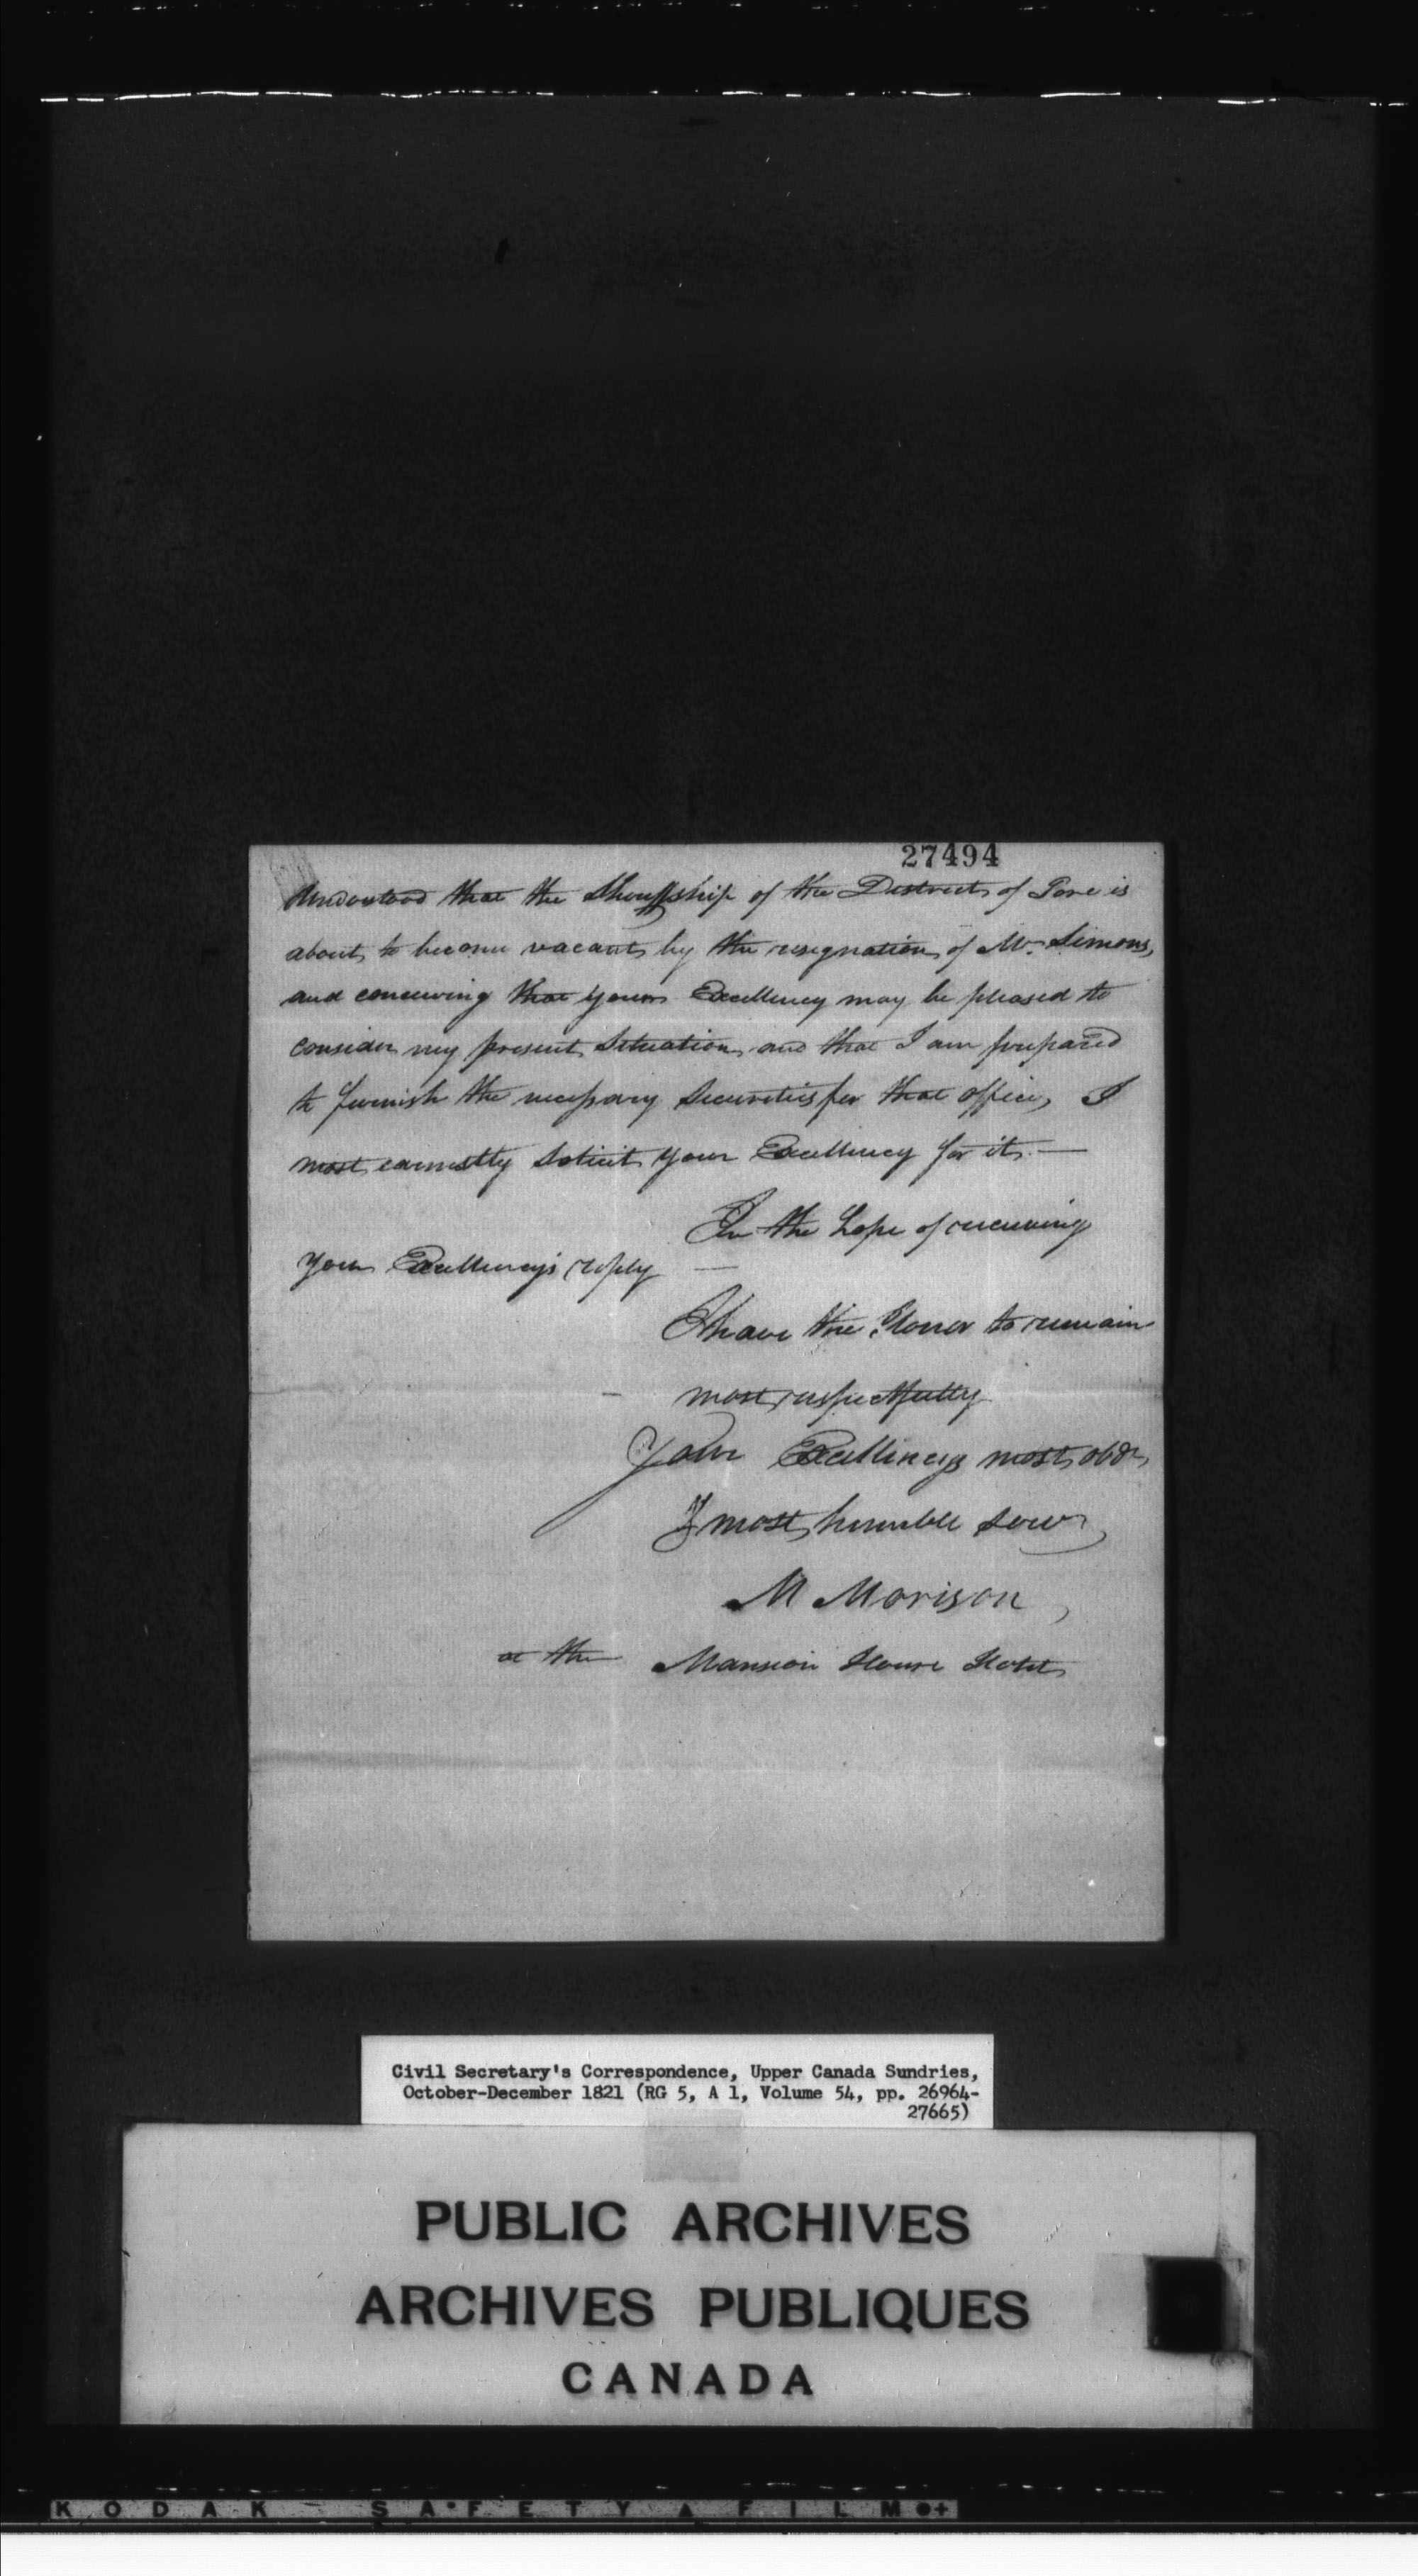 27494
Understood that the Sheriffship of the District of Gore is
about to become vacant by the resignation of Mr. Simons,
and conceiving that your Excellency may be pleased to
consider my present Situation and that I am prepared
to furnish the necessary Securities for that office, I
most earnestly Solicit your Excellency for it. —
In the hope of receiving
your Excellency's reply —
I have the Honor to remain
most respectfully
Your Excellencys most obdt,
& most humble Servt
M Morison
at the Mansion House Hotel
Civil Secretary's Correspondence, Upper Canada Sundries,
October-December 1821 (RG 5, A 1, Volume 54, pp. 26964-
27665)
PUBLIC ARCHIVES
ARCHIVES PUBLIQUES
CANADA
KODAK SAFETY ▲ FILM ●+